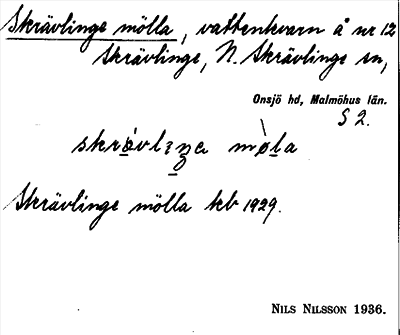 Skrävlinge mölla, vattenkvarn å nr 12
Skrävlinge, N. Skrävlinge sn,
Onsjö hd, Malmöhus län.
S 2.
mòla
Skrävlinge mölla kb 1929.
NILS NILSSON 1936.